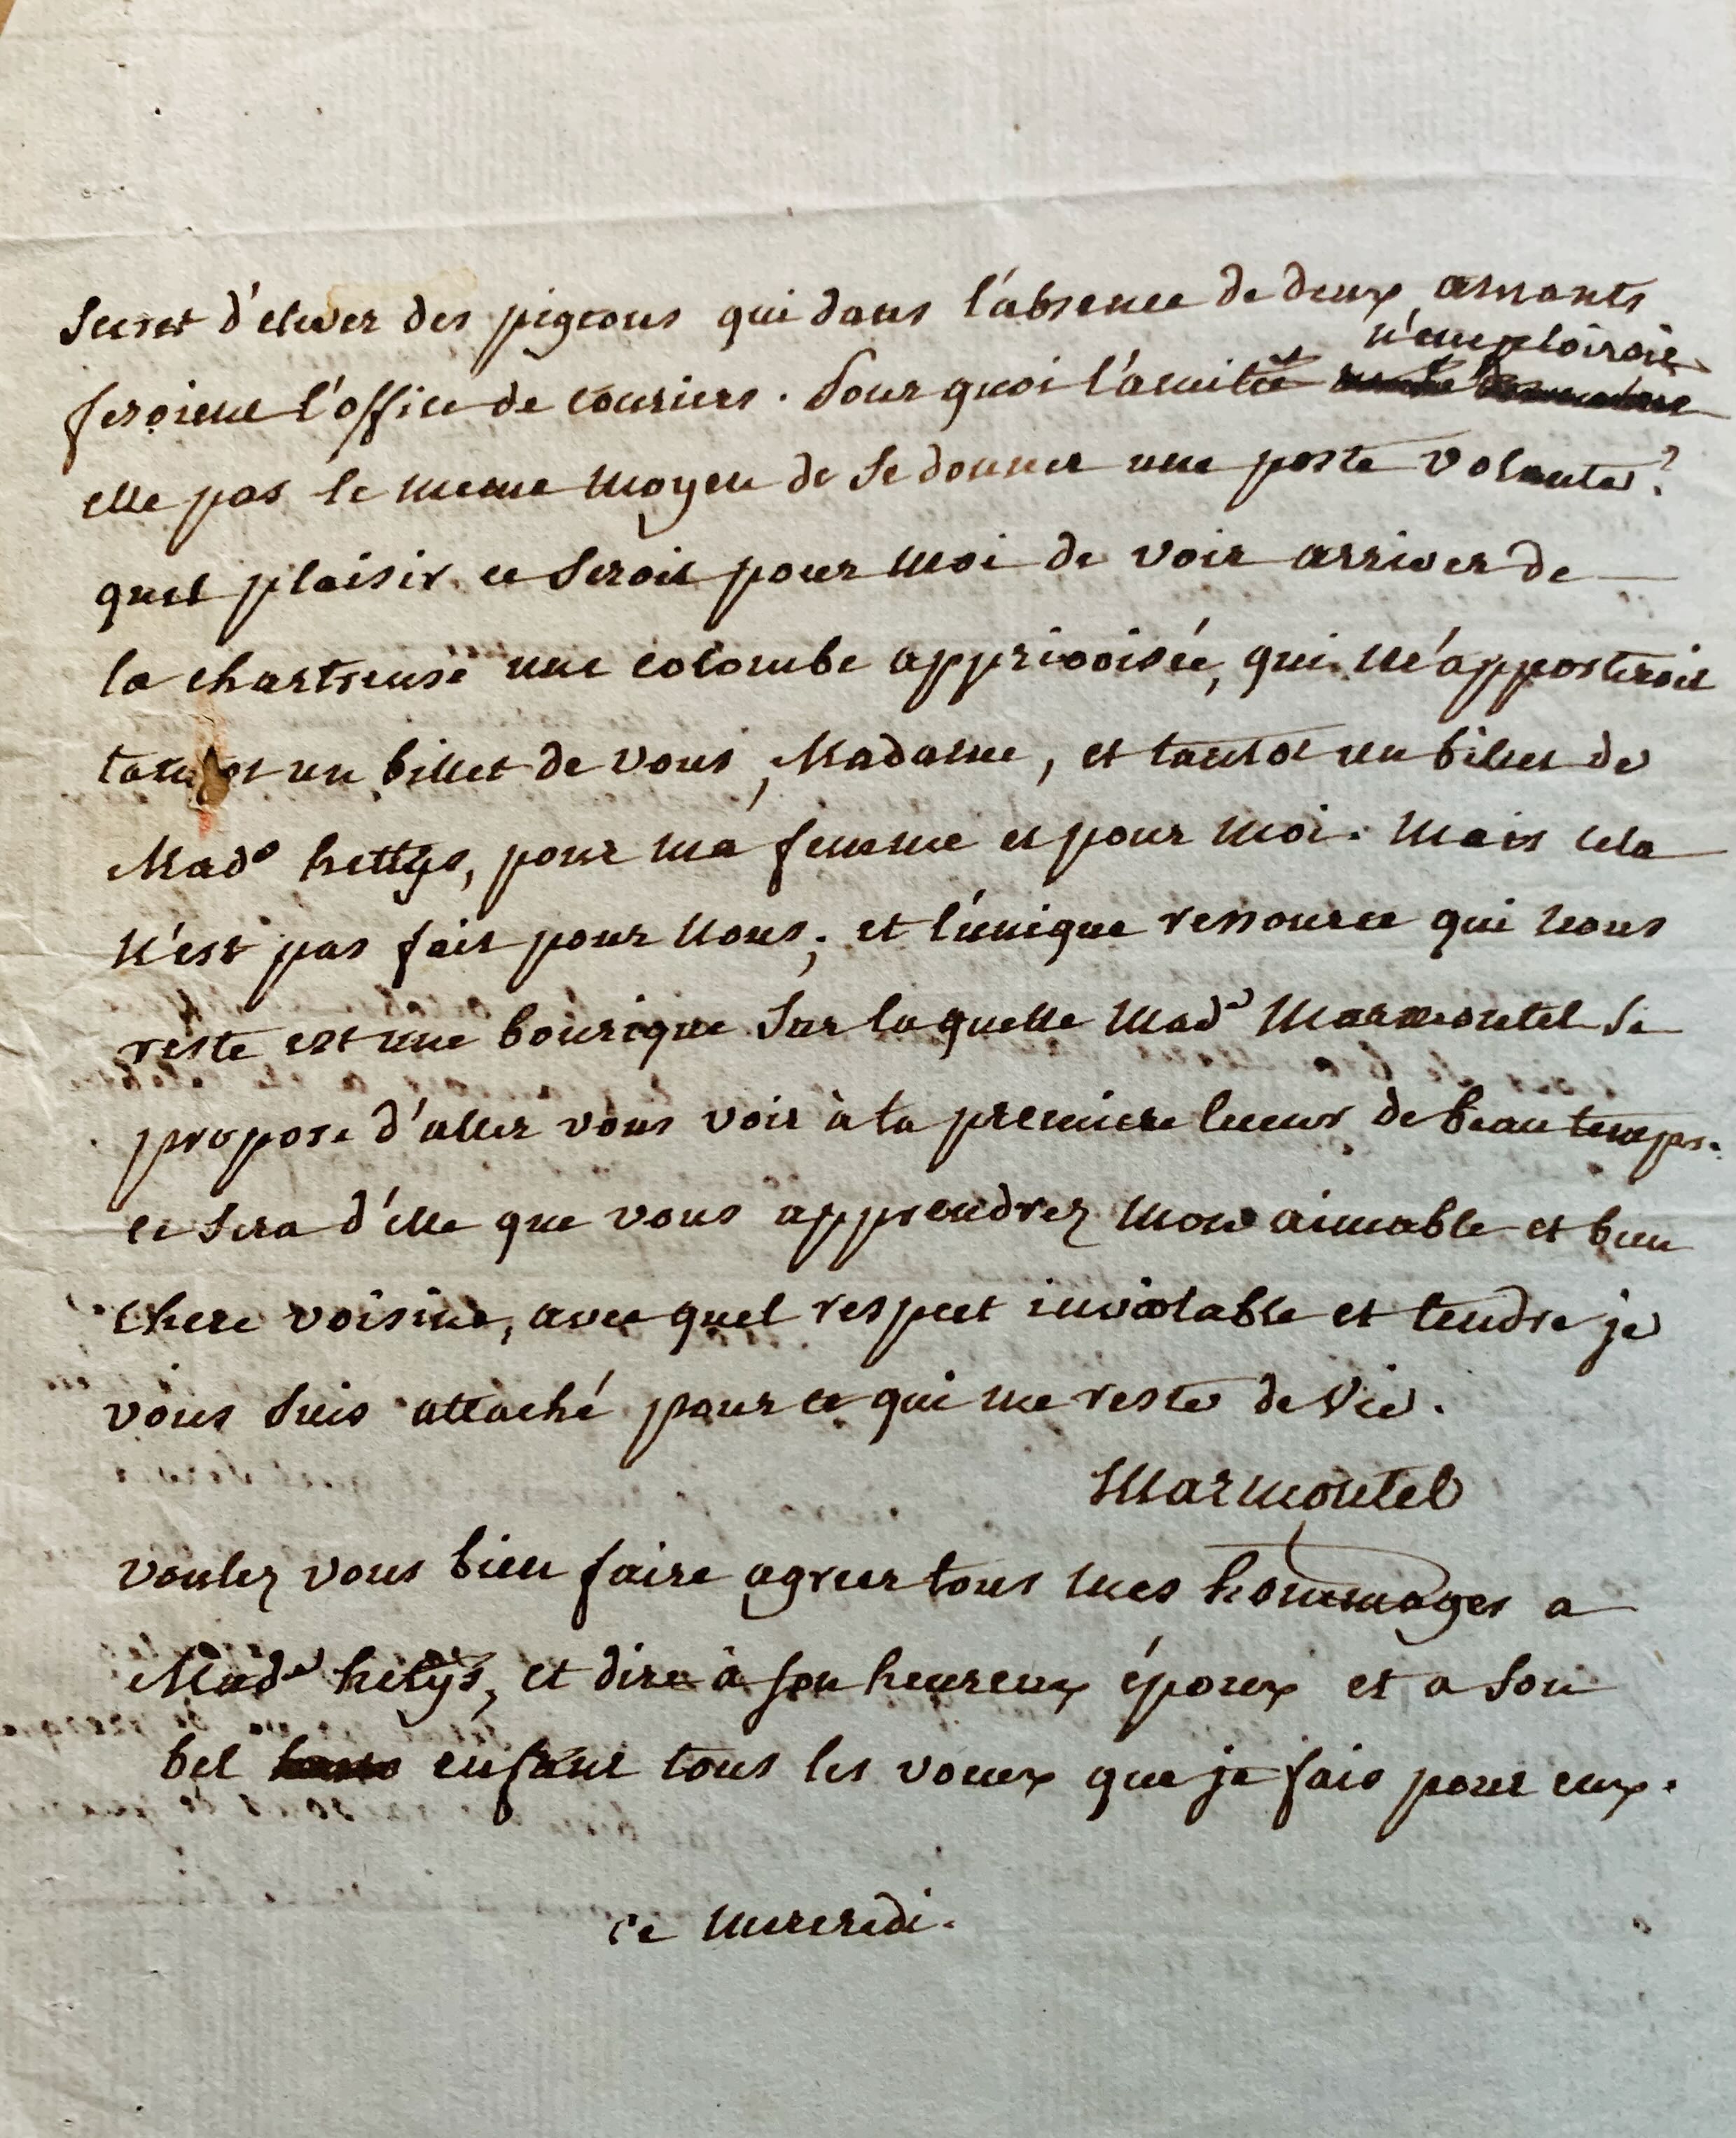 secret d'elever des pigeons qui dans l'absence de deux amants
n'emploiroit
feroient l'office de couriers. Pourquoi l'amitié
elle pas le meme moyen de se donner une poste volante?
quel plaisir ce seroit pour moi de voir arriver de
la chartreuse une colombe apprivoisée, qui m'apporteroit
tantot un billet de vous, Madame, et tantot un billet de
Made hettys, pour ma femme et pour moi. Mais cela
n'est pas fait pour nous; et l'unique ressource qui nous
reste est une bourique sur laquelle Made Marmontel se
propose d'aller vous voir à la premiere lueur de beau temps.
ce sera d'elle que vous apprendrez mon aimable et bien
chere voisine, avec quel respect inviolable et tendre je
vous suis attaché pour ce qui me reste de vie.
Marmontel
voulez vous bien faire agreer tous mes hommages a
Made hetys, et dire à son heureux époux et a son
bel enfant tous les voeux que je fais pour eux.
ce mercredi.